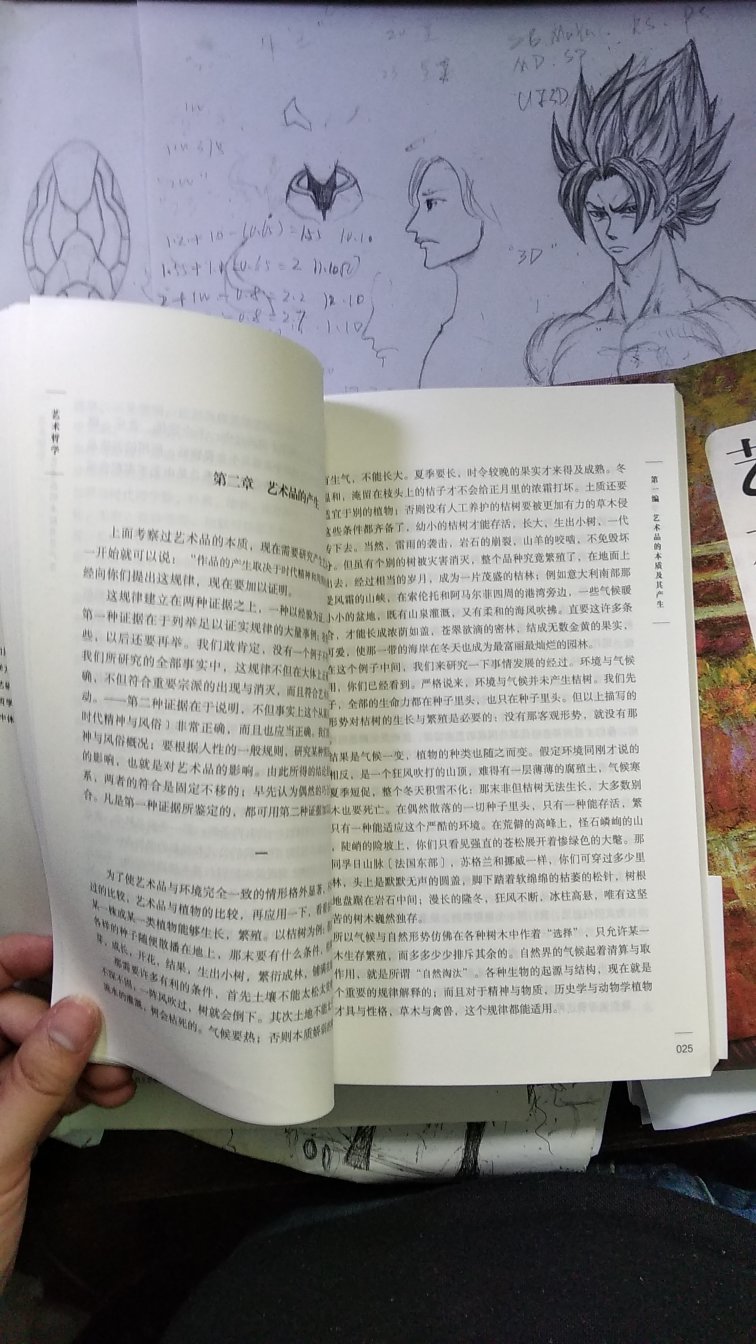 "3D"
艺术哲学
第二章 艺术品的产生
上面考察过艺术品的本质，现在需要研究产生
一开始就可以说："作品的产生取决于时代精神和周围
经向你们提出这规律，现在要加以证明。
这规律建立在两种证据之上，一种以经验为证
第一种证据在于列举足以证实规律的大量事例；
些，以后还要再举。我们敢肯定，没有一个例子
我们所研究的全部事实中，这规律不但在大体上
确，不但符合重要宗派的出现与消灭，而且符合艺术
动。——第二种证据在于说明，不但事实上这个从
时代精神与风俗〕非常正确，而且也应当正确。我们
神与风俗概况；要根据人性的一般规则，研究某种
的影响，也就是对艺术品的影响。由此所得的结论
系，两者的符合是固定不移的；早先认为偶然的巧
合。凡是第一种证据所鉴定的，都可用第二种证据加以
一
为了使艺术品与环境完全一致的情形格外显著，
过的比较，艺术品与植物的比较，再应用一下，看看
某一株或某一类植物能够生长，繁殖。以桔树为例，
各样的种子随便散播在地上，那末要有什么条件，
芽，成长，开花，结果，生出小树，繁衍成林，铺满
那需要许多有利的条件，首先土壤不能太松太
不深不固，一阵风吹过，树就会倒下。其次土地不能太
流水的灌溉，树会枯死的。气候要热；否则本质娇弱的
有生气，不能长大。夏季要长，时令较晚的果实才来得及成熟。冬
温和，淹留在枝头上的桔子才不会给正月里的浓霜打坏。土质还要
适宜于别的植物；否则没有人工养护的桔树要被更加有力的草木侵
这些条件都齐备了，幼小的桔树才能存活，长大，生出小树，一代
传下去。当然，雷雨的袭击，岩石的崩裂，山羊的咬啮，不免毁坏
分。但虽有个别的树被灾害消灭，整个品种究竟繁殖了，在地面上
出去，经过相当的岁月，成为一片茂盛的桔林；例如意大利南部那
受风霜的山峡，在索伦托和阿马尔菲四周的港湾旁边，一些气候暖
小小的盆地，既有山泉灌溉，又有柔和的海风吹拂。直要这许多条
合，才能长成浓荫如盖，苍翠欲滴的密林，结成无数金黄的果实，
可爱，使那一带的海岸在冬天也成为最富丽最灿烂的园林。
在这个例子中间，我们来研究一下事情发展的经过。环境与气候
用，你们已经看到。严格说来，环境与气候并未产生桔树。我们先
子，全部的生命力都在种子里头，也只在种子里头。但以上描写的
形势对桔树的生长与繁殖是必要的；没有那客观形势，就没有那
结果是气候一变，植物的种类也随之而变。假定环境同刚才说的
相反，是一个狂风吹打的山顶，难得有一层薄薄的腐殖土，气候寒
夏季短促，整个冬天积雪不化：那末非但桔树无法生长，大多数别
木也要死亡。在偶然散落的一切种子里头，只有一种能存活，繁
只有一种能适应这个严酷的环境。在荒僻的高峰上，怪石嶙峋的山
，陡峭的险坡上，你们只看见强直的苍松展开着惨绿色的大氅。那
同孚日山脉〔法国东部〕，苏格兰和挪威一样，你们可穿过多少里
林，头上是默默无声的圆盖，脚下踏着软绵绵的枯萎的松针，树根
地盘踞在岩石中间；漫长的隆冬，狂风不断，冰柱高悬，唯有这坚
苦的树木巍然独存。
所以气候与自然形势仿佛在各种树木中作着"选择"，只允许某一
木生存繁殖，而多多少少排斥其余的。自然界的气候起着清算与取
作用，就是所谓"自然淘汰"。各种生物的起源与结构，现在就是
个重要的规律解释的；而且对于精神与物质，历史学与动物学植物
才具与性格，草木与禽兽，这个规律都能适用。
第一编 艺术品的本质及其产生
025